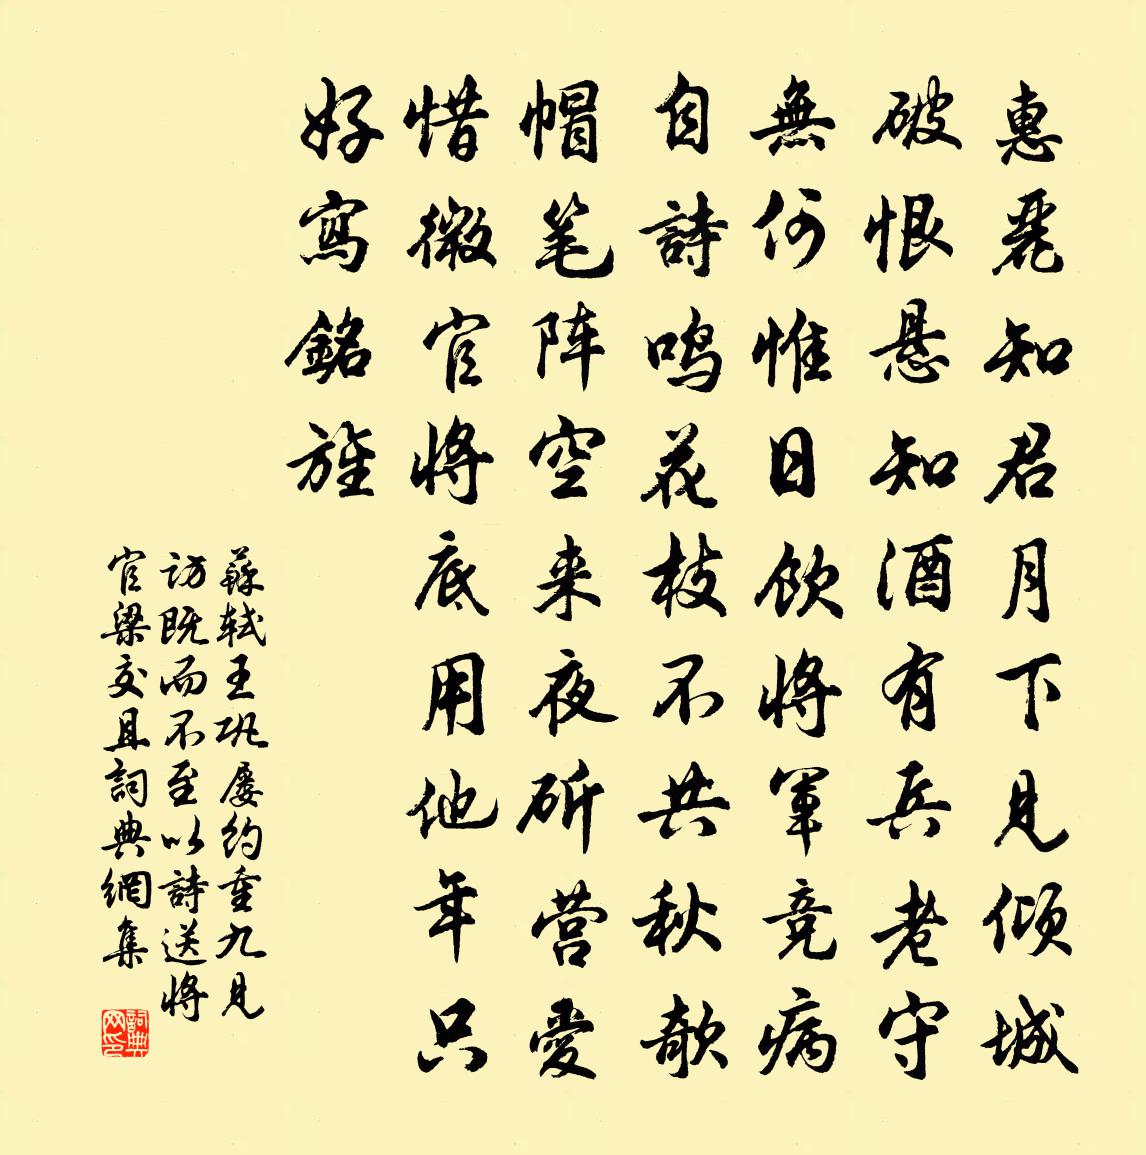 惠麗知君月下見傾城
破恨悬知酒有兵老守
無何惟日飲將軍竞病
自詩鳴花枝不共秋欹
帽笔阵空来夜斫营愛
惜微官將底用他年只
好寫銘旌
蘇軾王巩屡約重九見
訪既而不至以詩送將
官梁交且詞典網集
詞典
网印